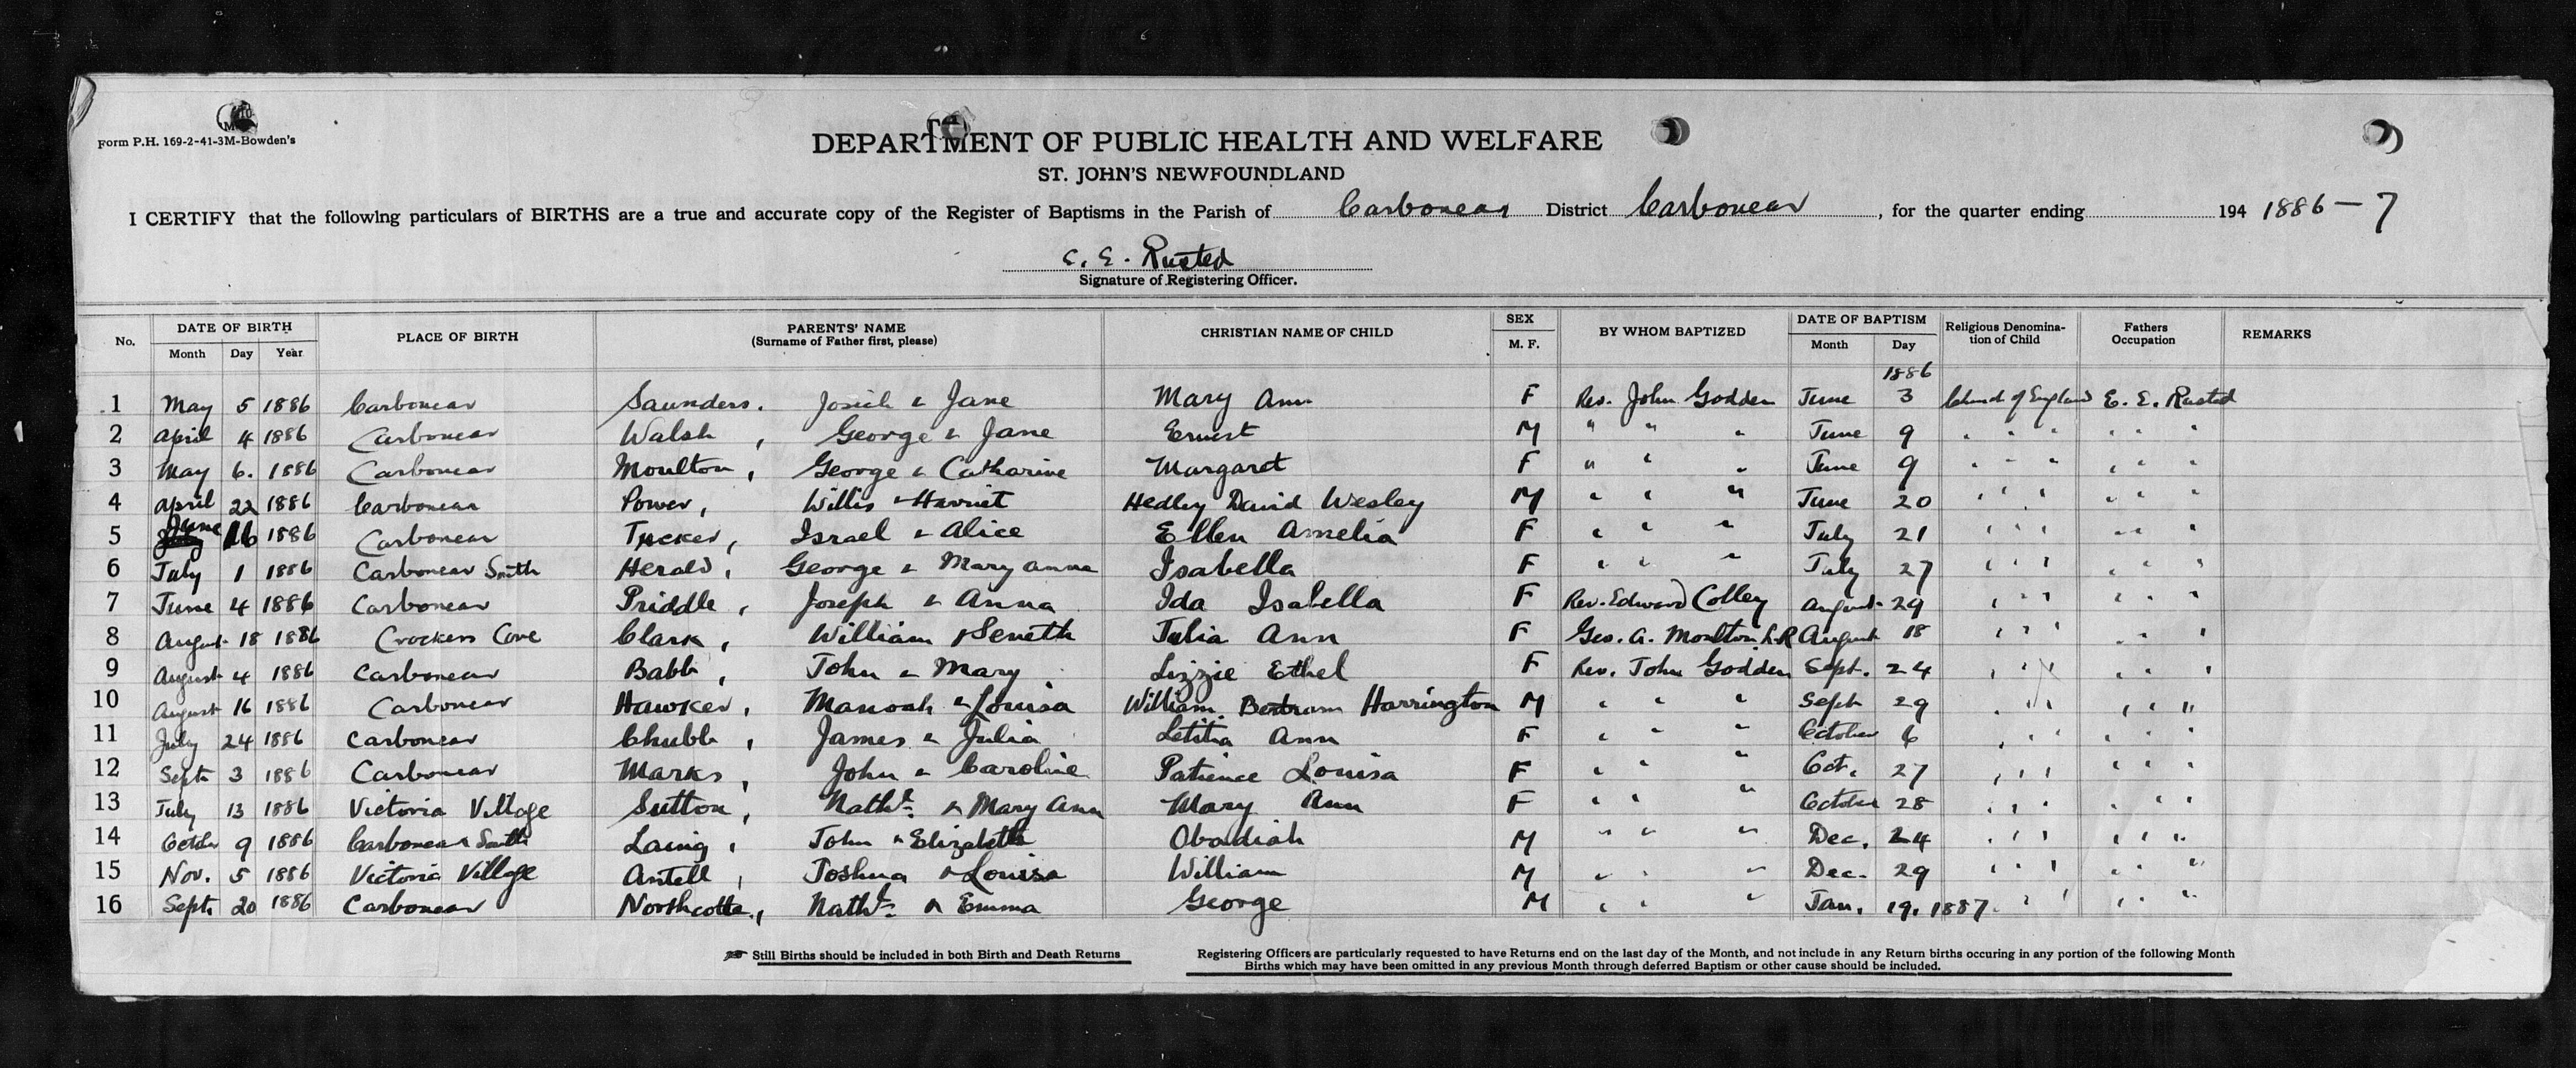 Form P.H. 169-2-41-3M-Bowden's
DEPARTMENT OF PUBLIC HEALTH AND WELFARE
ST. JOHN'S NEWFOUNDLAND
I CERTIFY that the following particulars of BIRTHS are a true and accurate copy of the Register of Baptisms in the Parish of Carbonear District Carbonear, for the quarter ending 194 1886-7
E. E. Rusted
Signature of Registering Officer.
No. DATE OF BIRTH PLACE OF BIRTH PARENTS' NAME CHRISTIAN NAME OF CHILD SEX BY WHOM BAPTIZED DATE OF BAPTISM Religious Denomina- Fathers REMARKS
Month Day Year (Surname of Father first, please) M. F. Month Day tion of Child Occupation
1886
1 May 5 1886 Carbonear Saunders. Josiah & Jane Mary Ann F Rev. John Godden June 3 Church of England E. E. Rusted
2 April 4 1886 Carbonear Walsh, George & Jane Ernest M " " " June 9 " " " " " "
3 May 6. 1886 Carbonear Moulton, George & Catharine Margaret F " " " June 9 " " " " " "
4 April 22 1886 Carbonear Power, Willis & Harriet Hedley David Wesley M " " " June 20 " " " " " "
5 June 16 1886 Carbonear Tucker, Israel & Alice Ellen Amelia F " " " July 21 " " " " " "
6 July 1 1886 Carbonear South Herald, George & Mary anna Isabella F " " " July 27 " " " " " "
7 June 4 1886 Carbonear Priddle, Joseph & Anna Ida Isabella F Rev. Edward Colley August 29 " " " " " "
8 August 18 1886 Crockers Cove Clark, William & Seneth Julia Ann F Geo. A. Moulton L.R August 18 " " " " " "
9 August 4 1886 Carbonear Babb, John & Mary Lizzie Ethel F Rev. John Godden Sept. 24 " " " " " "
10 August 16 1886 Carbonear Hawker, Manoah & Louisa William Bertram Harrington M " " " Sept 29 " " " " " "
11 July 24 1886 Carbonear Chubb, James & Julia Letitia Ann F " " " October 6 " " " " " "
12 Sept 3 1886 Carbonear Marks, John & Caroline Patience Louisa F " " " Oct. 27 " " " " " "
13 July 13 1886 Victoria Village Sutton, Nathl. & Mary Ann Mary Ann F " " " October 28 " " " " " "
14 October 9 1886 Carbonear South Laing, John & Elizabeth Obadiah M " " " Dec. 24 " " " " " "
15 Nov. 5 1886 Victoria Village Antell, Joshua & Louisa William M " " " Dec. 29 " " " " " "
16 Sept. 20 1886 Carbonear Northcotte, Nathl. & Emma George M " " " Jan. 19, 1887. " " " " "
Still Births should be included in both Birth and Death Returns
Registering Officers are particularly requested to have Returns end on the last day of the Month, and not include in any Return births occuring in any portion of the following Month
Births which may have been omitted in any previous Month through deferred Baptism or other cause should be included.